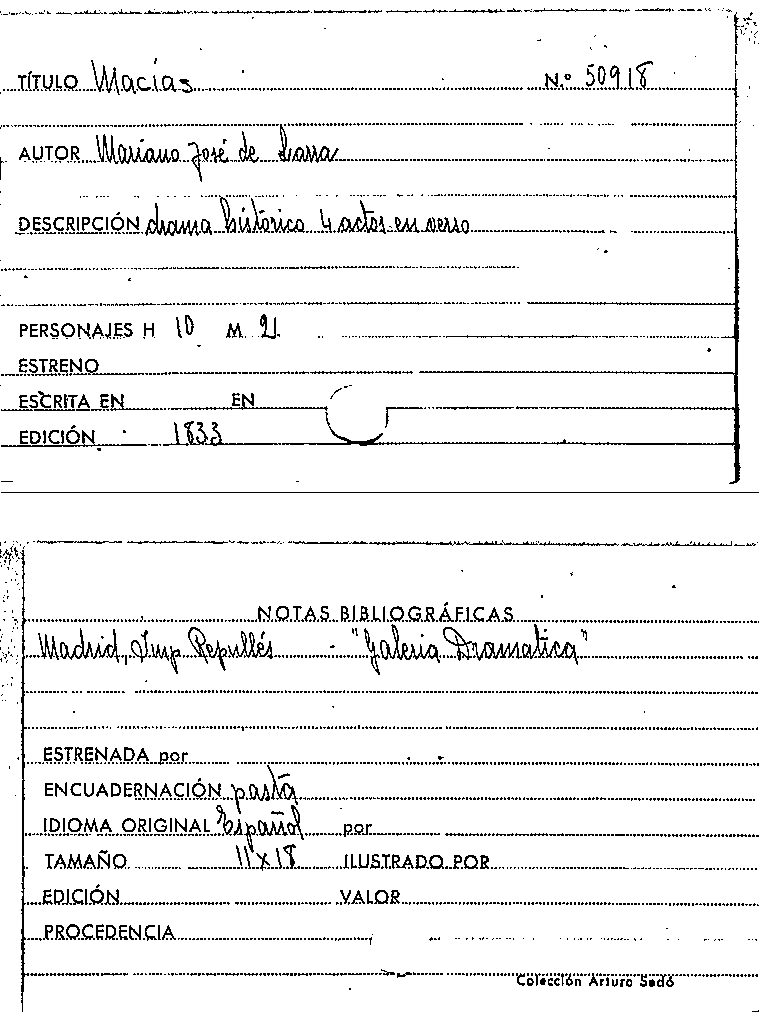 TÍTULO Macías N.º 50918
AUTOR Mariano José de Larra
DESCRIPCIÓN drama histórico 4 actos en verso
PERSONAJES H 10 M
ESTRENO
ESCRITA EN EN
EDICIÓN 1833
NOTAS BIBLIOGRÁFICAS
Madrid, Imp Repullés - "Galeria Dramatica"
ESTRENADA por
ENCUADERNACIÓN pasta
IDIOMA ORIGINAL Español por
TAMAÑO 11 x 18 ILUSTRADO POR
EDICIÓN VALOR
PROCEDENCIA
Colección Arturo Sedó